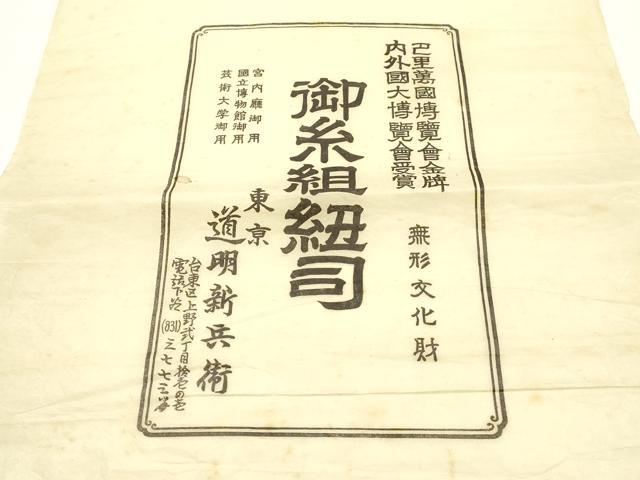 巴里萬國博覽會金牌
内外國大博覽會受賞
無形文化財
御糸組紐司
宮内廳御用
國立博物館御用
技術大学御用
東京
道明新兵衛
台東区上野弐丁目拾壱の壱
電話下谷(831)三七七三番